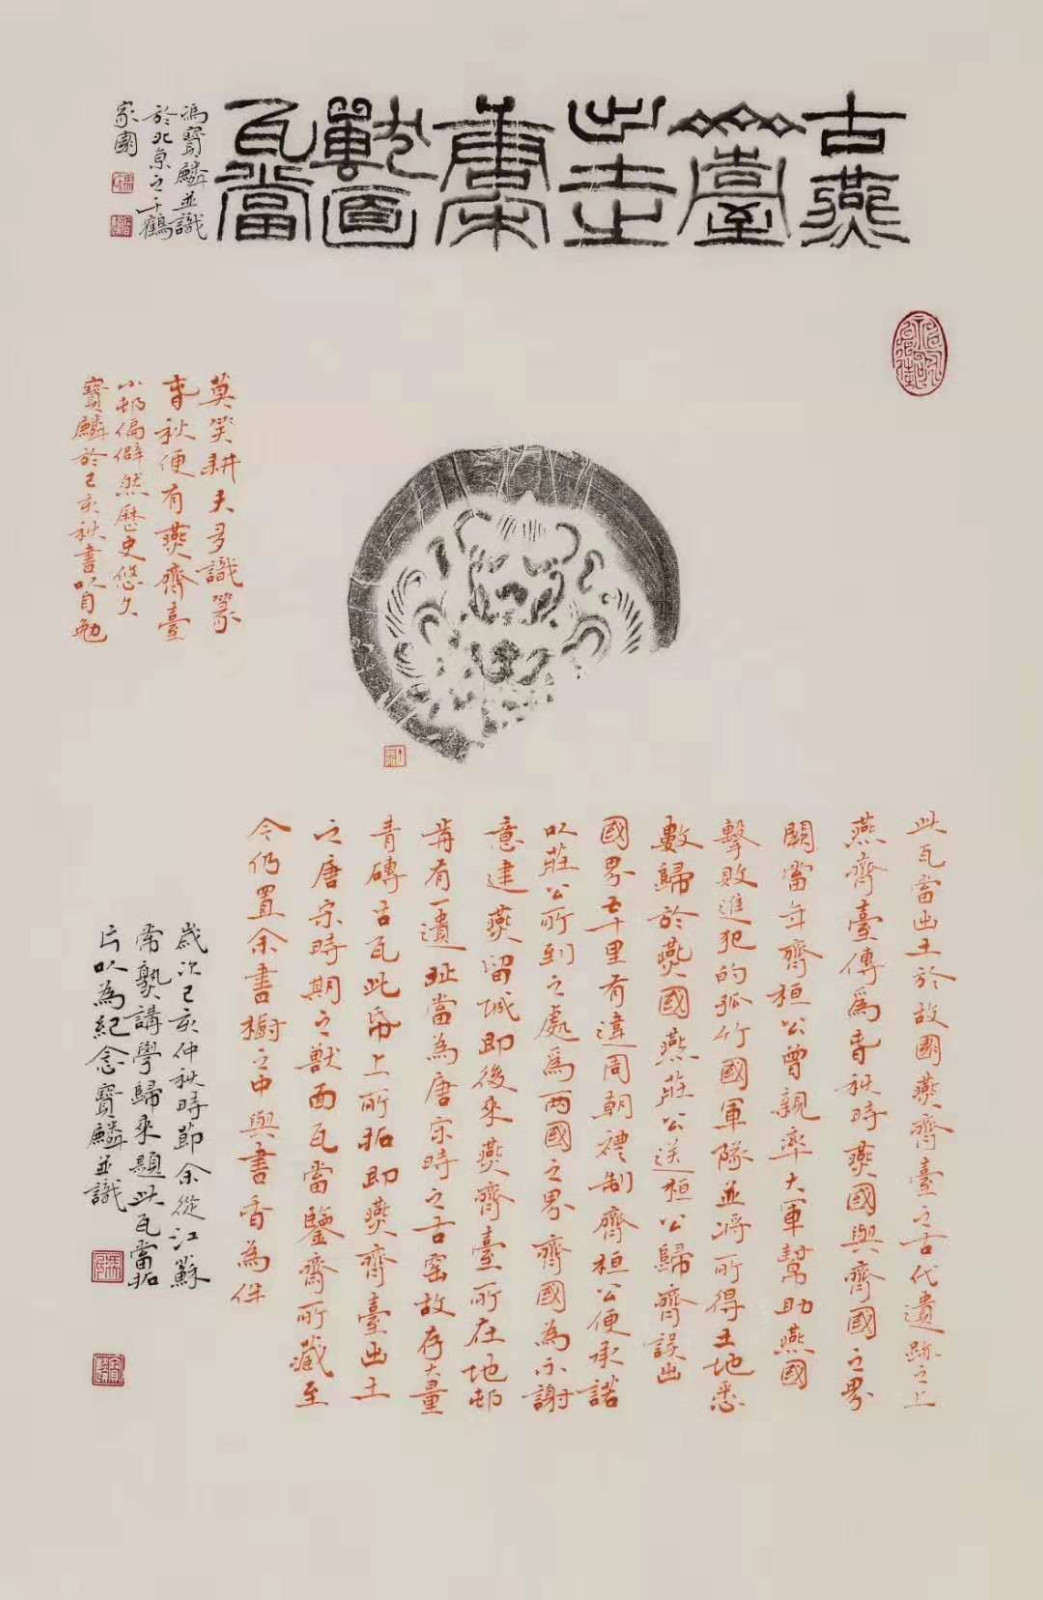 古燕
臺
出土
唐宋
獸面
瓦當
馮寶麟並識
於北京之千鶴
家園
莫笑耕夫多識篆
春秋便有燕齊臺
小邨偏僻然歷史悠久
寶麟於己亥秋書以自勉
此瓦當出土於故園燕齊臺之古代遺跡之上
燕齊臺傳為春秋時燕國與齊國之界
闕當年齊桓公曾親率大軍幫助燕國
擊敗進犯的孤竹國軍隊並將所得土地悉
數歸於燕國燕莊公送桓公歸齊誤出
國界五十里有違周朝禮制齊桓公便承諾
以莊公所到之處為兩國之界齊國為示謝
意建燕留城即後來燕齊臺所在地邨
前有一遺址當為唐宗時之古窑故存大量
青磚古瓦此帋上所拓即燕齊臺出土
之唐宗時期之獸面瓦當鑒齋所藏至
今仍置余書櫥之中與書香為伴
歲次己亥仲秋時節余從江蘇
常熟講學歸來題此瓦當拓
片以為紀念寶麟並識